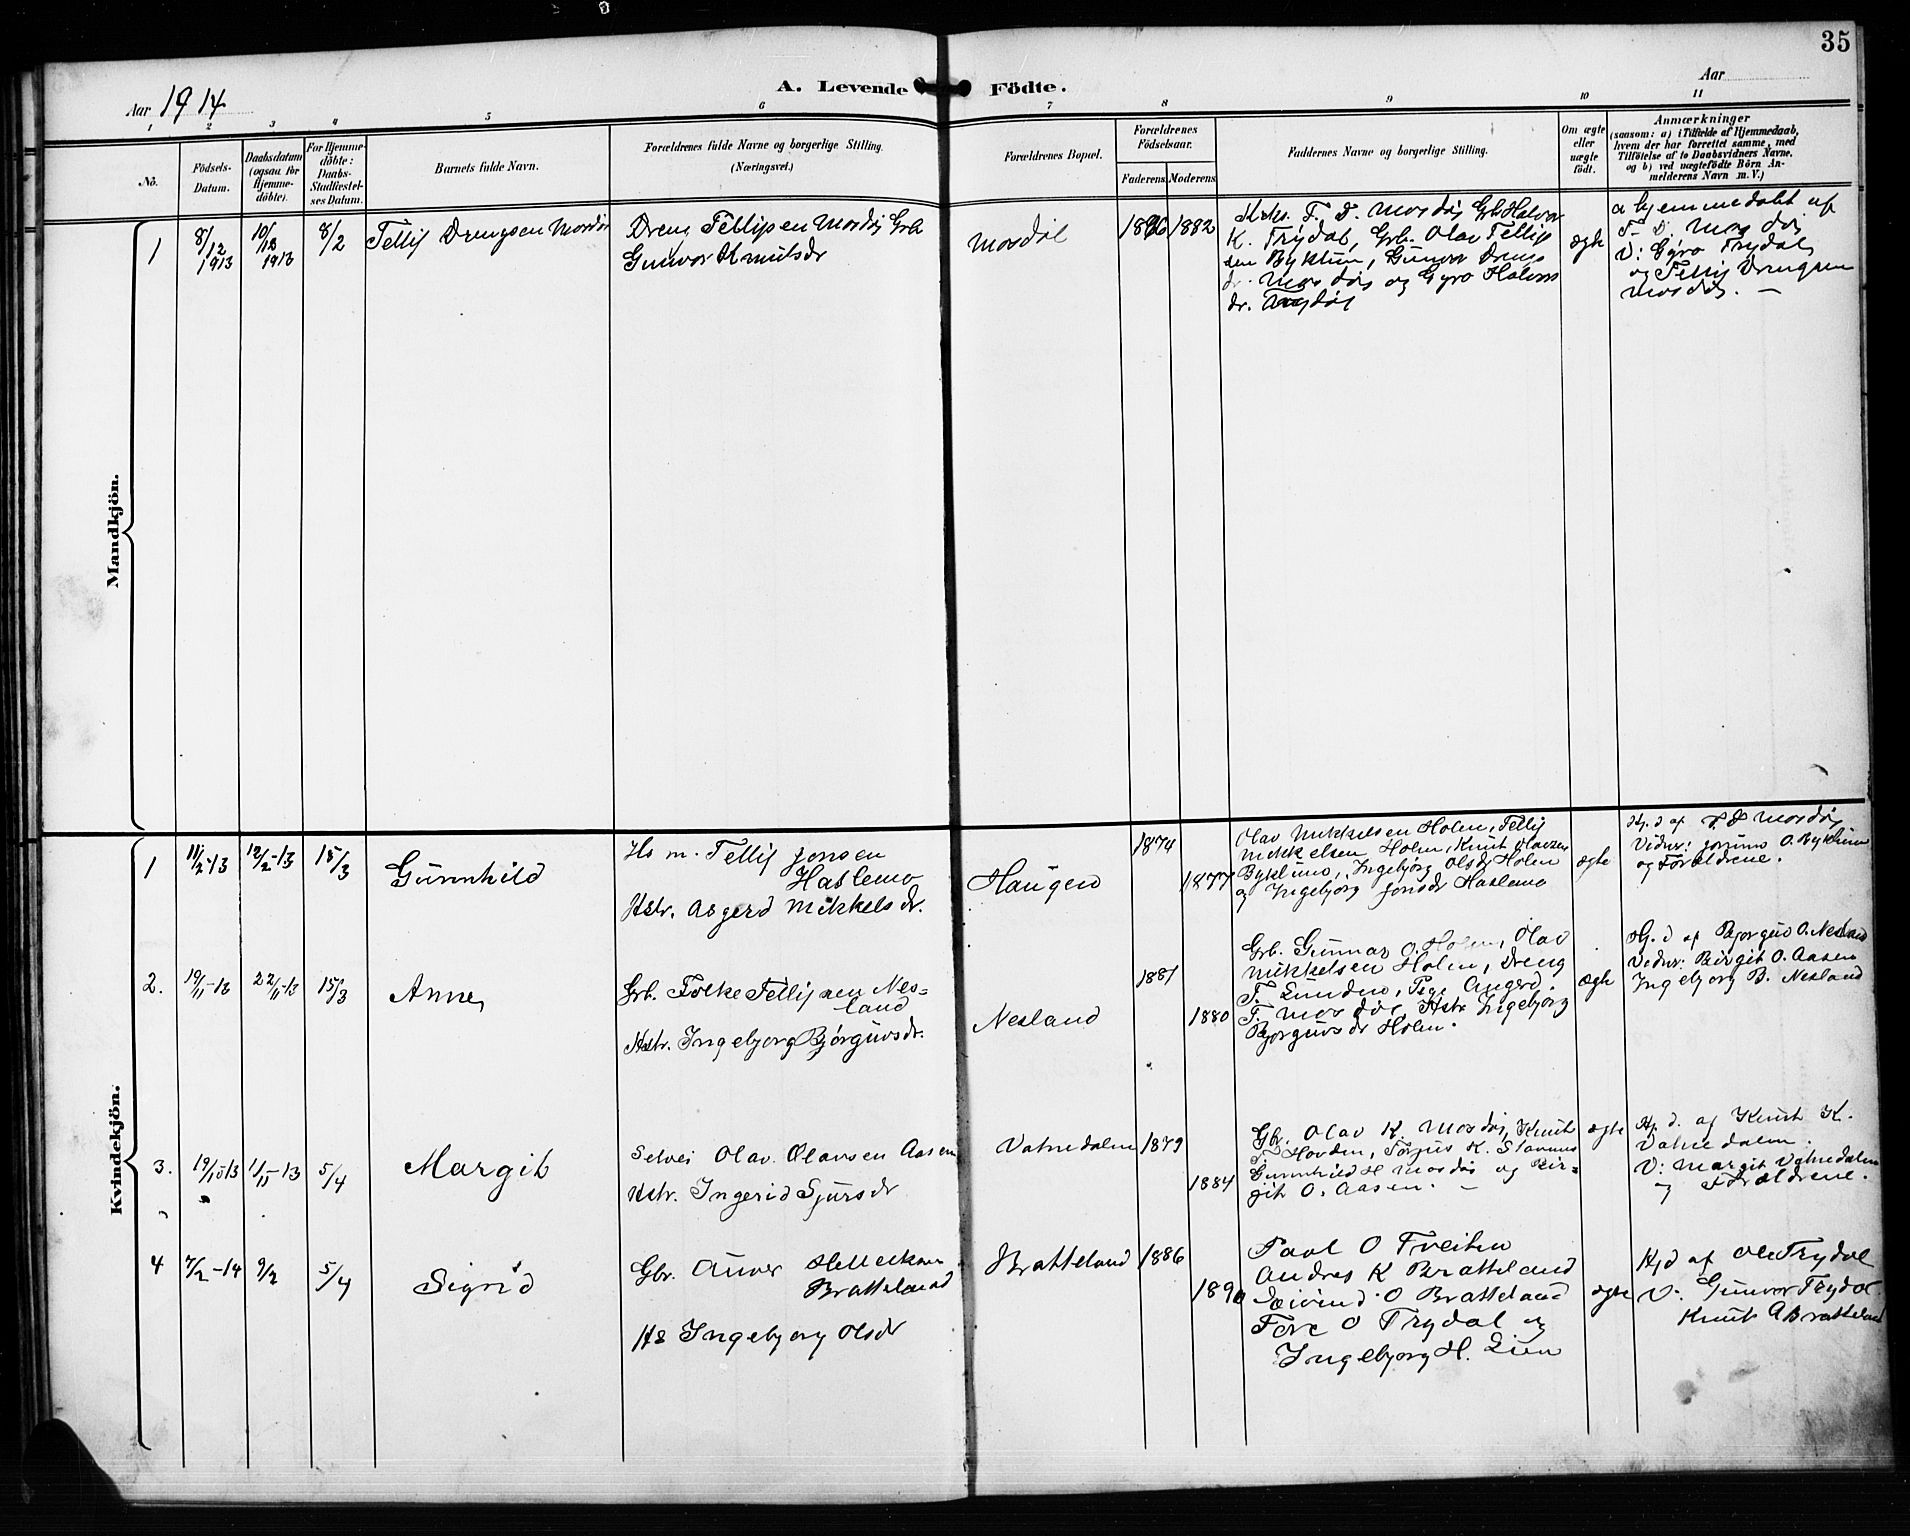 35
Aar 1914
A. Levende Födte.
Aar
1 2 3 4 5 6 7 8 9 10 11
No.
Födsels-
Datum.
Daabsdatum
(ogsaa for
Hjemme-
døbte).
For Hjemme-
døbte:
Daabs-
Stadfæstel-
ses Datum.
Barnets fulde Navn.
Forældrenes fulde Navne og borgerlige Stilling.
(Næringsvei.)
Forældrenes Bopæl.
Forældrenes
Födselsaar.
Faderens. Moderens.
Faddernes Navne og borgerlige Stilling.
Om ægte
eller
uægte
födt.
Anmærkninger
(saasom: a) i Tilfælde af Hjemmedaab,
hvem der har forrettet samme, med
Tilföielse af to Daabsvidners Navne,
og b) ved uægtefødte Börn An-
melderens Navn m. V.)
Mandkjön.
1
8/12
1913
10/12
1913
8/2
Tellif Drengsen Mosdøl
Dreng Tellefsen Mosdøl Grb
Gunvor Knutsdr
Mosdøl
1882
K. Trydal, Grb. Olav Tellif
sen Byklum, Gunvor Drengs
dr. Mosdøl og Gyro Halvors
dr. Trydal
ægte
a hjemmedøbt af
T. D. Mosdøl
V: Gyro Trydal
og Tellif Drengsen
Mosdøl. —
Kvindekjön.
1
11/2-13
12/2-13
15/3
Gunnhild
Hs m. Tellif Jonsen
Haslemo
Hstr. Asgerd Mikkelsdr.
Haugen
1874
1877
Olav Mikkelsen Holen, Tellif
Mikkelsen Holen, Knut Olavsen
Byklum, Ingebjørg Olsdr Holen
og Ingebjørg Jonsdr Haslemo
ægte
Hj. d af D Mosdøl
Vidner: O. Byklum
og Forældrene.
2.
19/11-13
22/11-13
15/3
Anne
Grb. Folke Tellifsen Nes-
land
Hstr. Ingebjørg Bjørgulvsdr.
Nesland
1881
1880
Grb. Gunnar O. Holen, Olav
Mikkelsen Holen, Dreng
T. Lunden, Pige Angerd
T. Mosdøl, Hstr Ingebjørg
Bjorgulvsdr Holen.
ægte
Hj. d af Bjorgulv O. Nesland
Vidner: Birgit O. Aasen
Ingebjorg B. Nesland
3.
5/4
Margit
Selvei Olav Olavsen Aasen
Hstr. Ingerid Sjursdr
Vatnedalen
1879
1884
Gbr. Olav K. Mosdøl, Knut
T. Hovden, Torjus K. Stavenes
Gunnhild H Mosdøl og Bir-
git O. Aasen. —
ægte
Hj. d. af Knut K.
Vatnedalen.
V: Margit Vatnedalen
og Forældrene.
4
7/2-14
9/2
5/4
Sigrid
Gbr.
Bratteland
Hs Ingebjorg Olsdr
Bratteland
1886
1890
Paul O Treiten
Andres K Bratteland
Eivind O Bratteland
Tore O Trydal og
Ingebjorg H. Lien
ægte
Hjd af Ole Trydal
V: Gunvor Trydal
Knut A Bratteland